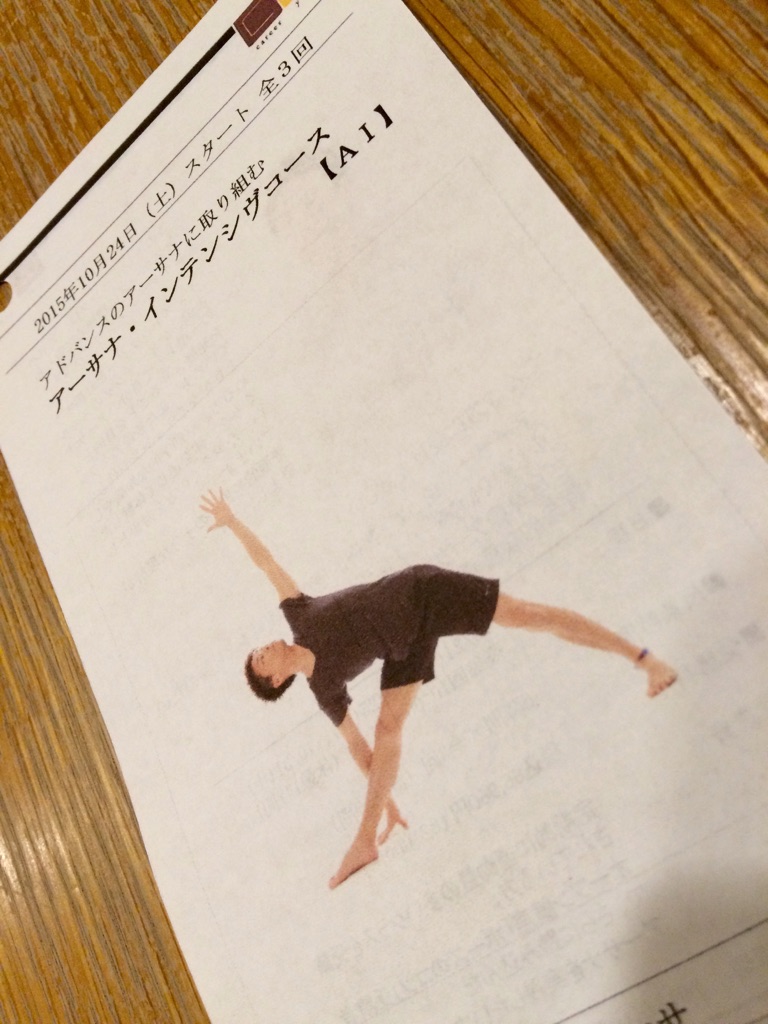 career
2015年10月24日（土）スタート 全3回
アドバンスのアーサナに取り組む
アーサナ・インテンシヴコース
【AI】
サ